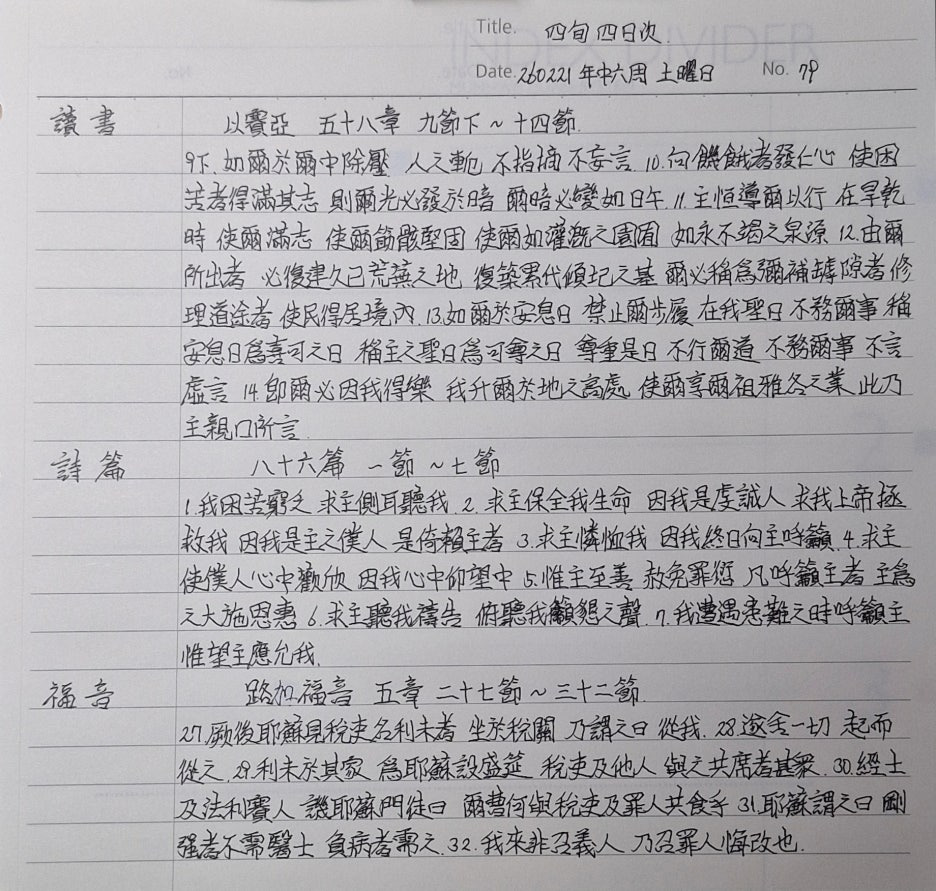 Title. 四旬 四日次
Date. 260221 年中六周 土曜日 No. 79
讀書 以賽亞 五十八章 九節下～十四節
9下. 如爾於爾中除壓 人之軛 不指摘 不妄言. 10. 向饑餓者發仁心 使困
苦者得滿其志 則爾光必發於暗 爾暗必變如日午. 11. 主恒導爾以行 在旱乾
時 使爾滿志 使爾筋骸堅固 使爾如灌漑之園囿 如永不竭之泉源 12. 由爾
所出者 必復建久已荒蕪之地 復築累代傾圮之基 爾必稱爲彌補罅隙者 修
理道途者 使民得居境內. 13. 如爾於安息日 禁止爾步履 在我聖日 不務爾事 稱
安息日爲喜可之日 稱主之聖日爲可尊之日 尊重是日 不行爾道 不務爾事 不言
虛言 14. 卽爾必因我得樂 我升爾於地之高處 使爾享爾祖雅各之業 此乃
主親口所言.
詩篇 八十六篇 一節～七節
1. 我困苦窮乏 求主側耳聽我. 2. 求主保全我生命 因我是虔誠人 求我上帝拯
救我 因我是主之僕人 是倚賴主者 3. 求主憐恤我 因我終日向主呼籲. 4. 求主
使僕人心中歡欣 因我心中仰望中 5. 惟主至善 赦免罪愆 凡呼籲主者 主爲
之大施恩惠 6. 求主聽我禱告 俯聽我籲懇之聲. 7. 我遭遇患難之時呼籲主
惟望主應允我.
福音 路加福音 五章 二十七節～三十二節.
27. 厥後耶穌見稅吏名利未者 坐於稅關 乃謂之曰 從我. 28. 遂舍一切 起而
從之. 29. 利未於其家 爲耶穌設盛筵 稅吏及他人 與之共席者甚衆. 30. 經士
及法利賽人 譏耶穌門徒曰 爾曹何與稅吏及罪人共食乎 31. 耶穌謂之曰 剛
强者不需醫士 負病者需之. 32. 我來非召義人 乃召罪人悔改也.